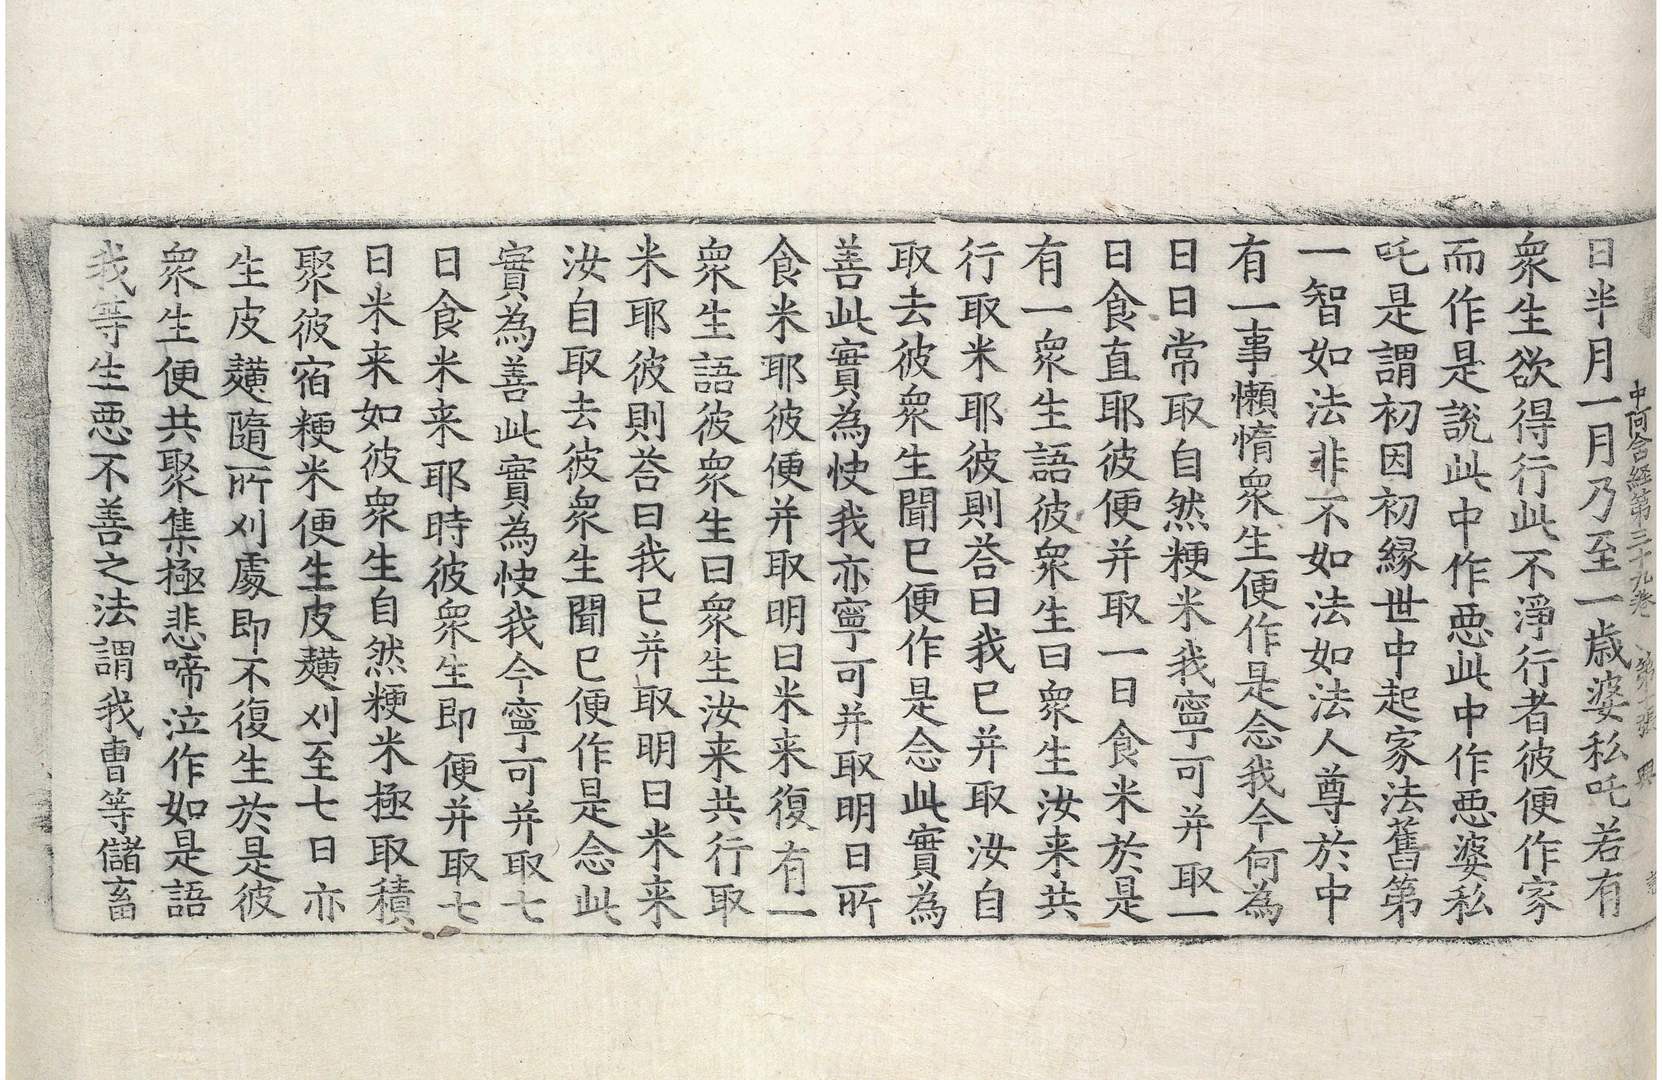 中阿含經第三十九卷 第七張 興
日半月一月乃至一歳婆私吒若有
衆生欲得行此不淨行者彼便作家
而作是説此中作悪此中作悪婆私
吒是謂初因初縁世中起家法舊第
一智如法非不如法如法人尊於中
有一事懶惰衆生便作是念我今何為
日日常取自然粳米我寧可并取一
日食直耶彼便并取一日食米於是
有一衆生語彼衆生曰衆生汝来共
行取米耶彼則荅曰我已并取汝自
取去彼衆生聞已便作是念此實為
善此實為快我亦寧可并取明日所
食米耶彼便并取明日米来復有一
衆生語彼衆生曰衆生汝来共行取
米耶彼則荅曰我已并取明日米来
汝自取去彼衆生聞已便作是念此
實為善此實為快我今寧可并取七
日食米来耶時彼衆生即便并取七
日米来如彼衆生自然粳米極取積
聚彼宿粳米便生皮䵃刈至七日亦
生皮䵃隨所刈處即不復生於是彼
衆生便共聚集極悲啼泣作如是語
我等生悪不善之法謂我曹等儲畜